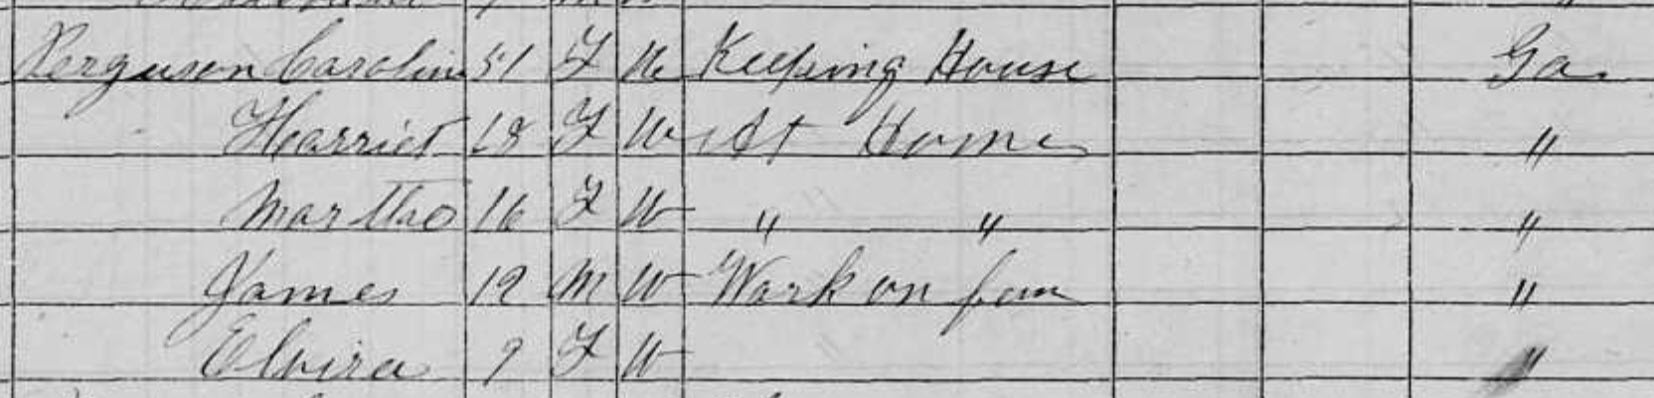 Ferguson Carolin 51 F W Keeping House Ga.
Harriet 18 F W At Home "
Martha 16 F W " " "
James 12 M W Work on farm "
Elvira 9 F W "